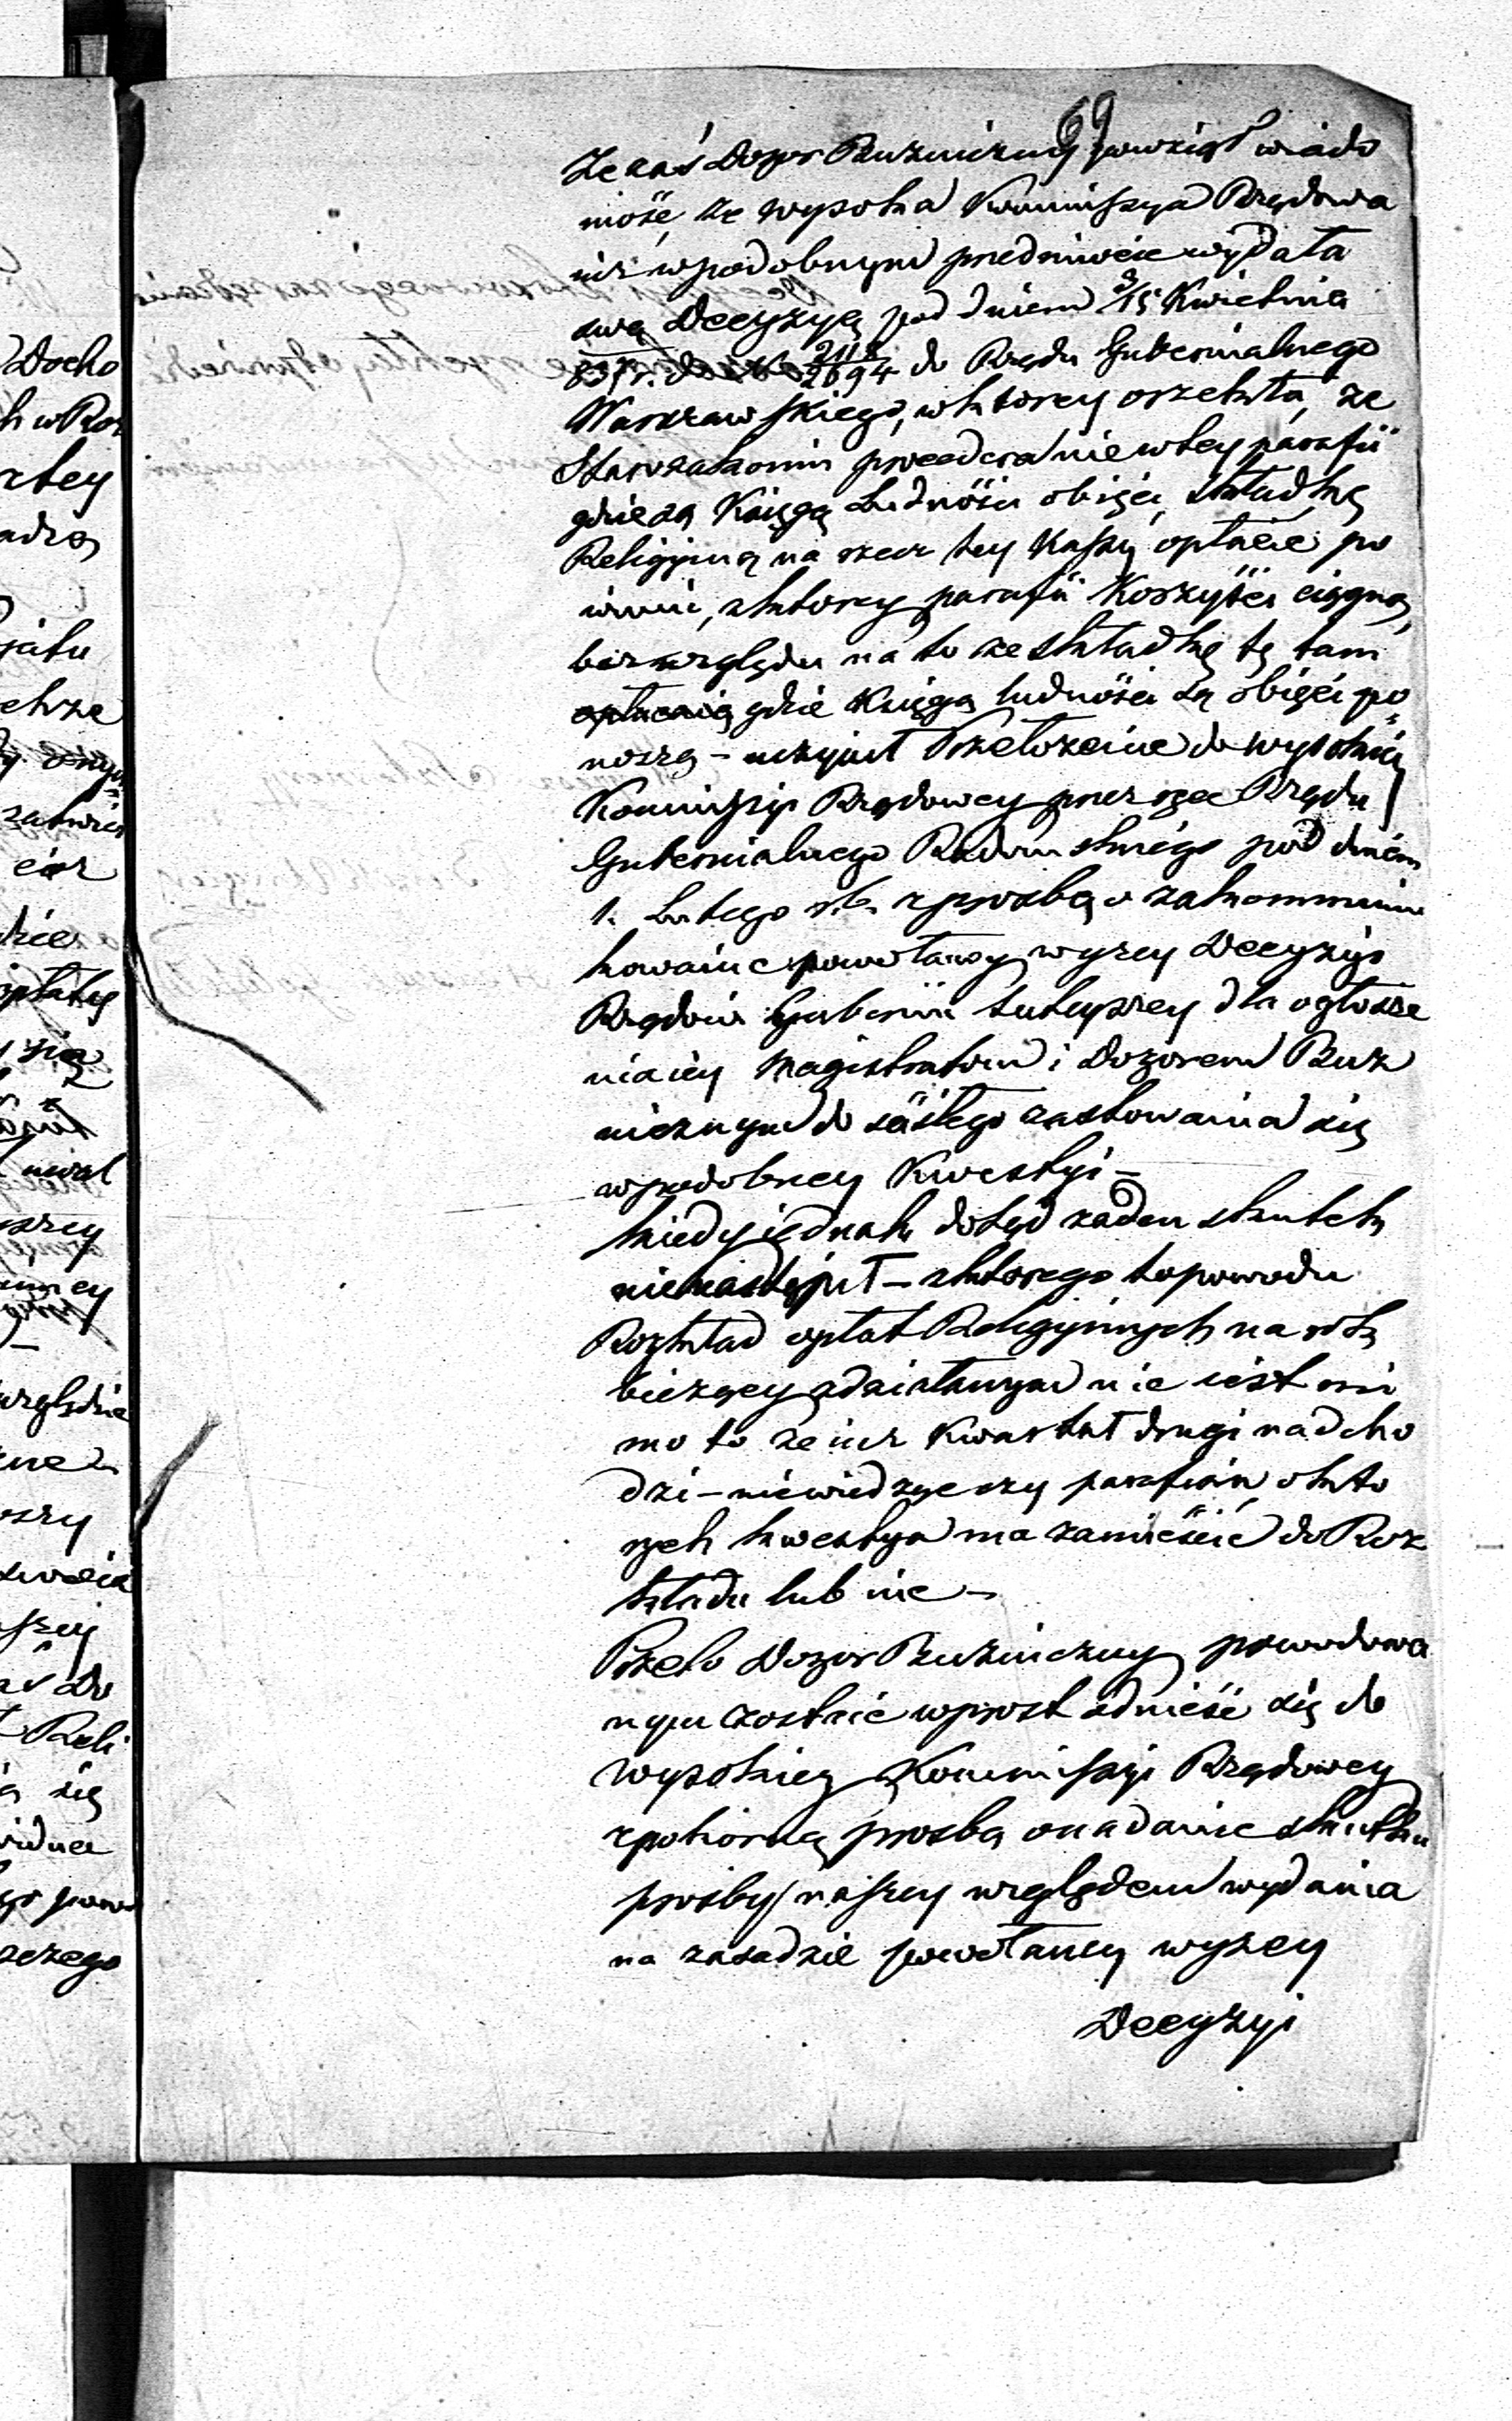 69
Ze zaś Dozor Bużniczny powziął wiado
mość, że wysoka Kommissya Rządowa
iuż w podobnym przedmiocie wydała
swą Decyzyą pod dniem 3/15 Kwietnia
837 r. do Rządu Gubernialnego
Warszawskiego, w ktorey orzekła, że
Starozakonni proceder nie w tey parafii
gdzie są Księgą Ludności obięci, składkę
Religijną na rzecz tey Kassy opłacać po
winni, z ktorey parafii Korzyści ciągną,
bez względu na to ze składkę tę tam
gdzie Księgą ludności są obięci po
noszą – uczynił Przełożenie do wysokiey
Kommissyi Rządowey przez ręce Rządu
Gubernialnego Radomskiego pod dniem
1. Lutego r.b. z prosbą o zakommuni
kowanie powołaney wyzey Decyzyi
Rządowi Gubernii tuteyszey dla ogłosze
nia iey Magistratom i Dozorom Buż
nicznym do ścisłego zastosowania się
w podobney Kwestyi –
kiedy iednak dotąd żaden skutek
nienastąpił – z ktorego to powodu
Rozkład opłat Religijnych na rok
bieżący zdziałanym nie iest mi
mo to że iuż Kwartał drugi nadcho
dzi – niewiedząc czy parafian o kto
rych kwestya ma zamieścić do Roz
kładu lub nie –
Przeto Dozor Bużniczny powodowa
nym zostaie wprost odnieść się do
wysokiey Kommissyi Rządowey
z pokorną prosbą o nadanie skutku
prosby naszey względem wydania
na zasadzie powołaney wyzey
Decyzyi